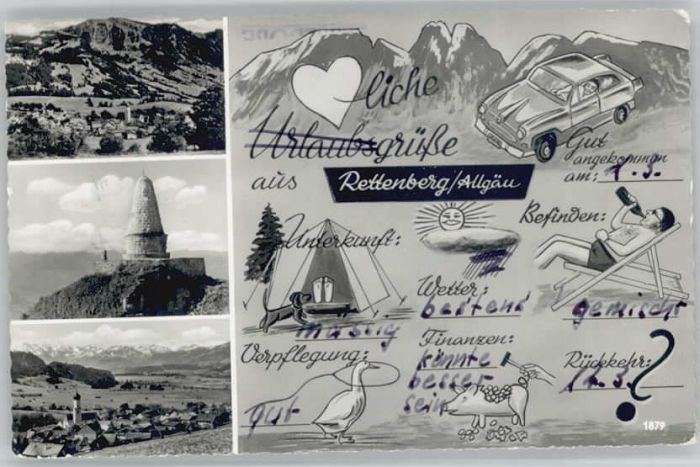 liche
Urlaubsgrüße
aus Rettenberg/Allgäu
Gut
angekommen
am: 1.3.
Unterkunft:
mässig
Wetter:
bestens
Befinden:
gemischt
Verpflegung:
gut
Finanzen:
könnte
besser
sein
Rückkehr:
?
1879